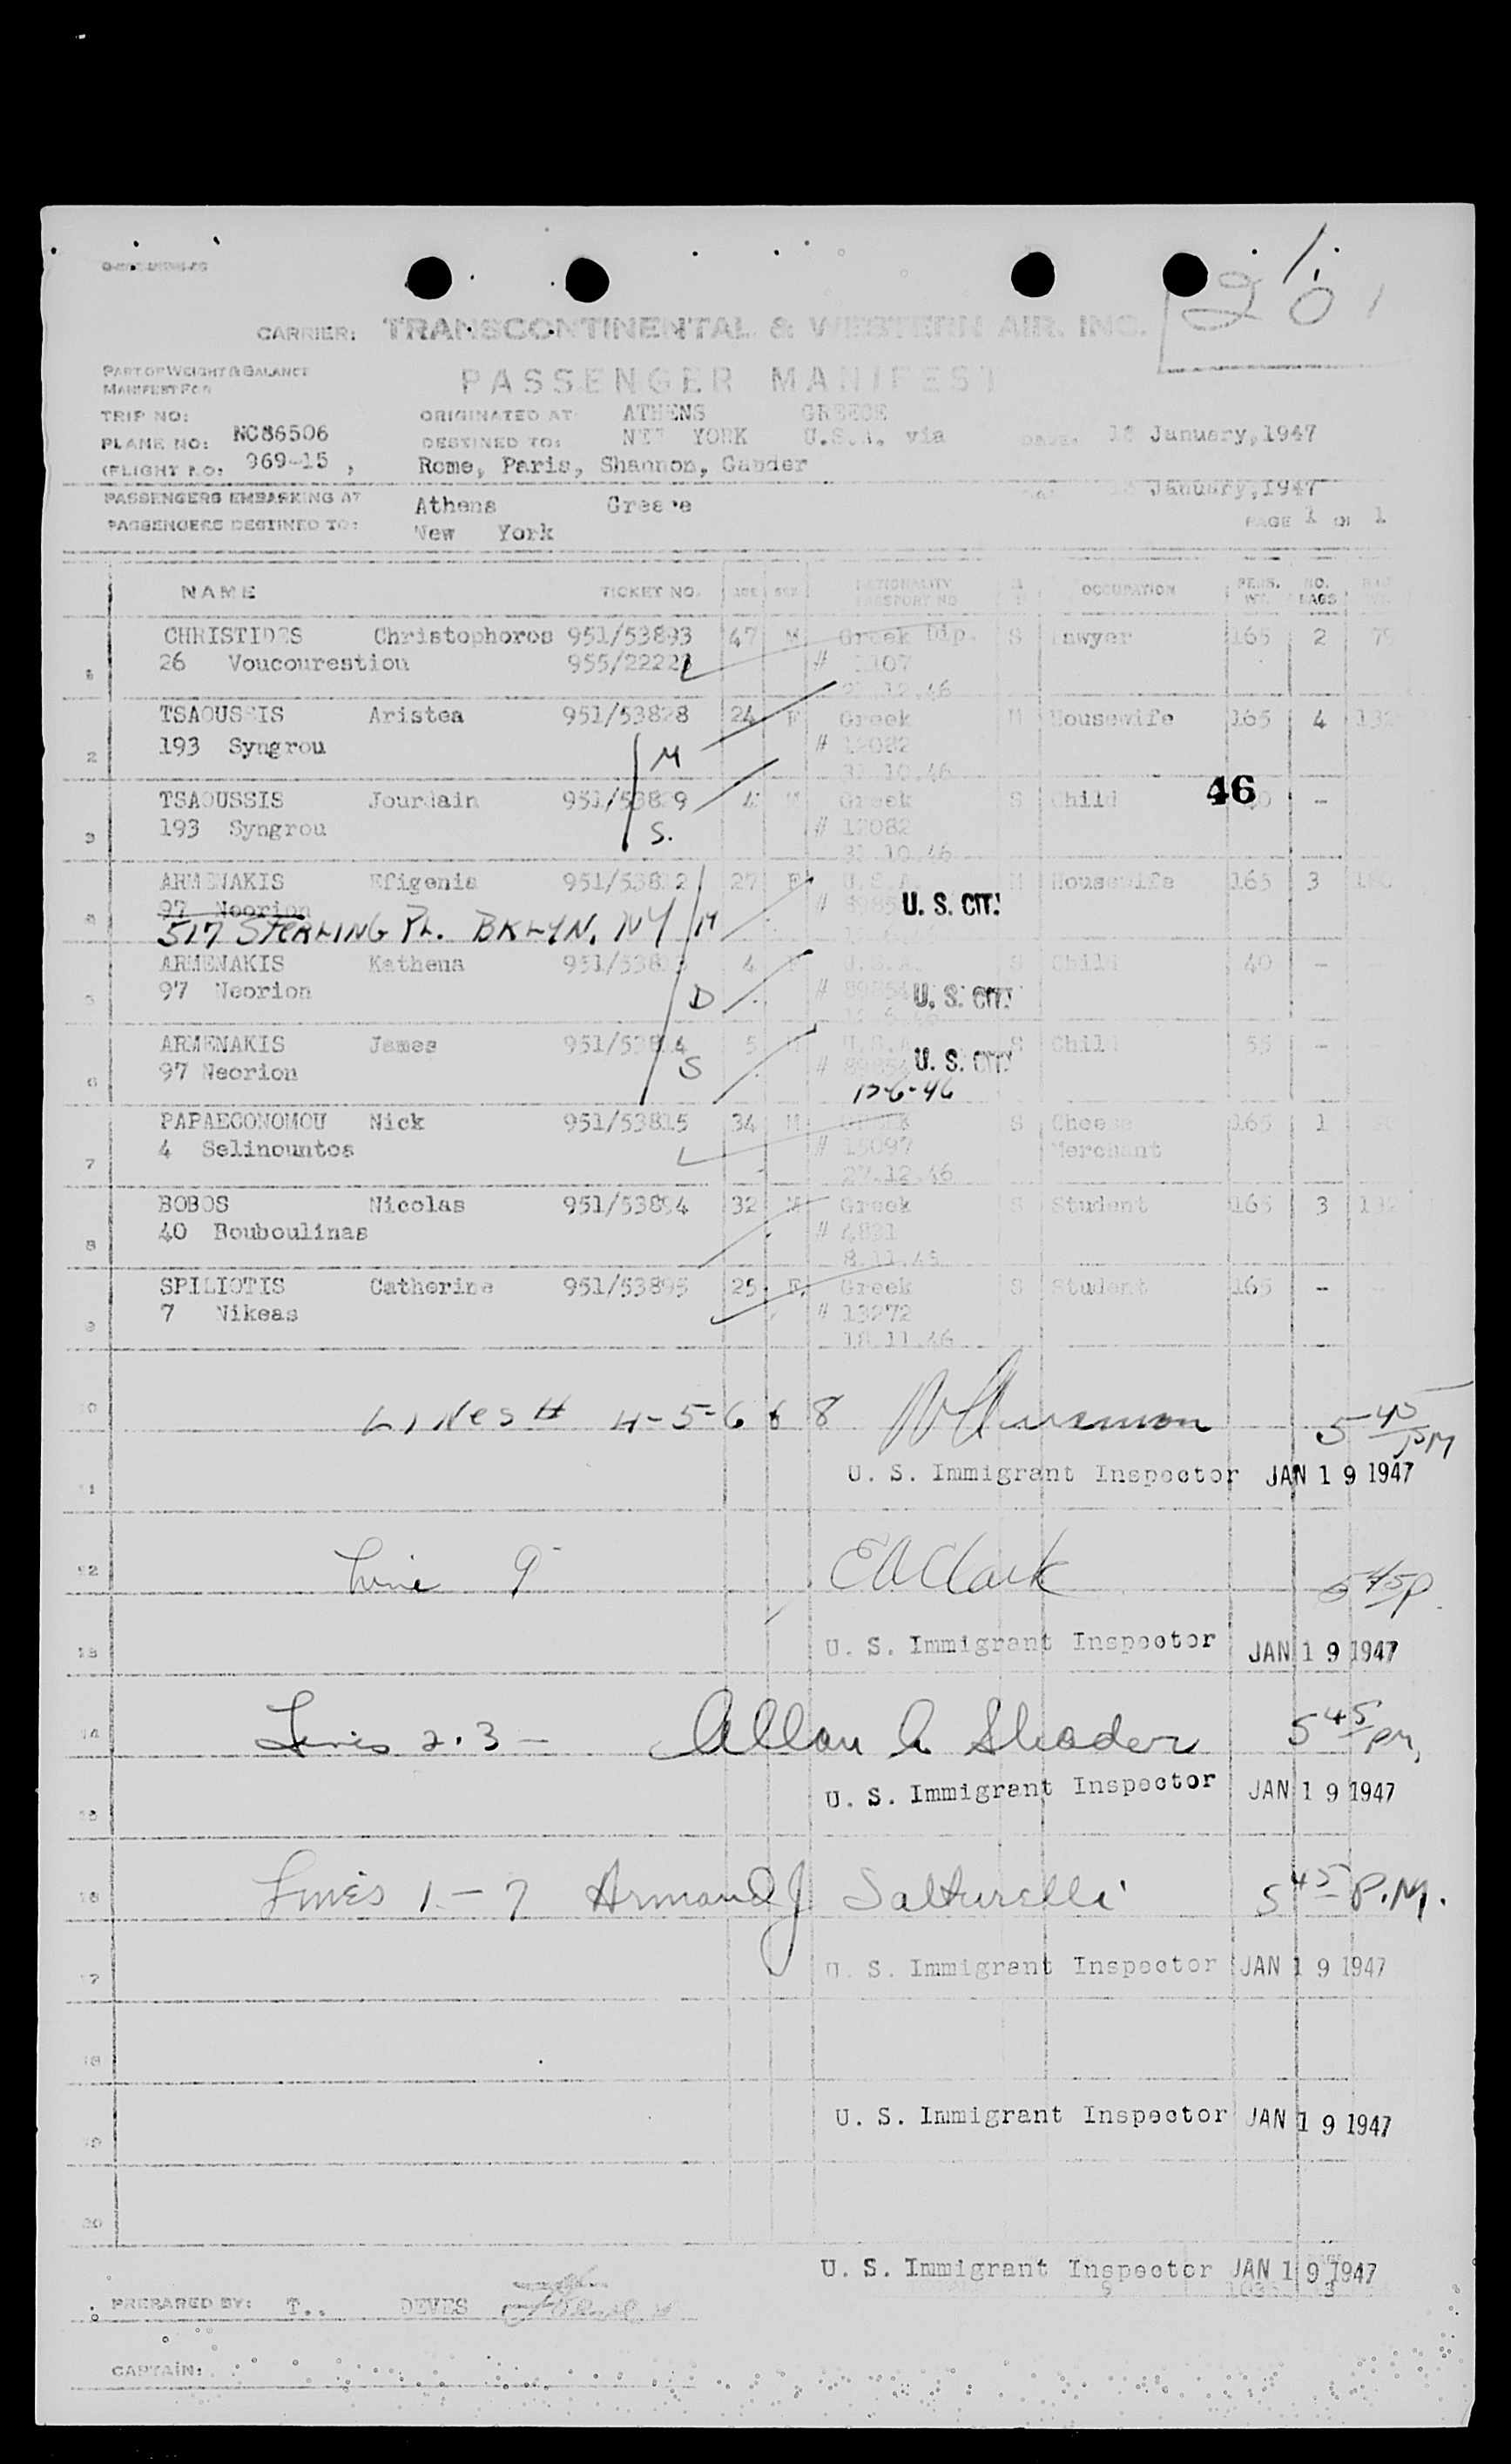 CARRIER: TRANSCONTINENTAL & WESTERN AIR. INC. 201
PART OF WEIGHT & BALANCE
MANIFEST FOR
PASSENGER MANIFEST
TRIP NO: ORIGINATED AT ATHENS GREECE
PLANE NO: NC86506 DESTINED TO: NEW YORK U.S.A. via DATE: January, 1947
(FLIGHT NO: 969-15 , Rome, Paris, Shannon, Gander
PASSENGERS EMBARKING AT Athens Greece January, 1947
PASSENGERS DESTINED TO: New York PAGE 1 OF 1
NAME TICKET NO. AGE SEX NATIONALITY PASSPORT NO OCCUPATION PERS. WT. NO. BAGS
1 CHRISTIDES Christophoros 951/53893 47 M Greek Dip. S Lawyer 165 2 79
26 Voucourestiou 955/22223 # 1107
.12.46
2 TSAOUSSIS Aristea 951/53828 24 F Greek M Housewife 165 4 132
193 Syngrou M # 12082
31.10.46
3 TSAOUSSIS Jourdain 951/53829 4 M Greek S Child 46 -
193 Syngrou S. # 12082
31.10.46
4 ARMENAKIS Efigenia 951/53812 27 F U.S.A. M Housewife 165 3
97 Neorion U. S. CIT.
517 STERLING PL. BKLYN, NY M
5 ARMENAKIS Kathena 951/53813 4 F U.S.A. S Child 40 -
97 Neorion D # 89854 U. S. CIT.
6 ARMENAKIS James 951/53814 5 M U.S.A. S Child 55 -
97 Neorion S # 89854 U. S. CIT.
12-6-46
7 PAPAECONOMOU Nick 951/53815 34 M Greek S Cheese 165 1
4 Selinountos # 15097 Merchant
27.12.46
8 BOBOS Nicolas 951/53894 32 M Greek S Student 165 3 132
40 Bouboulinas # 4821
8.11.45
9 SPILIOTIS Catherine 951/53895 25 F. Greek S Student 165 - -
7 Nikeas # 13272
18.11.46
10 Lines # 4-5-6 & 8 5 45 PM
11 U. S. Immigrant Inspector JAN 19 1947
12 Line 9 EA Clark 5 45 p.
13 U. S. Immigrant Inspector JAN 19 1947
14 Lines 2.3 - Allan A Shader 5 45 pm,
15 U. S. Immigrant Inspector JAN 19 1947
16 Lines 1 - 7 Armand J Salturelli 5 45 P.M.
17 U. S. Immigrant Inspector JAN 19 1947
18
19 U. S. Immigrant Inspector JAN 19 1947
20
U. S. Immigrant Inspector JAN 19 1947
9 3
PREPARED BY: T.. DEVES
CAPTAIN: